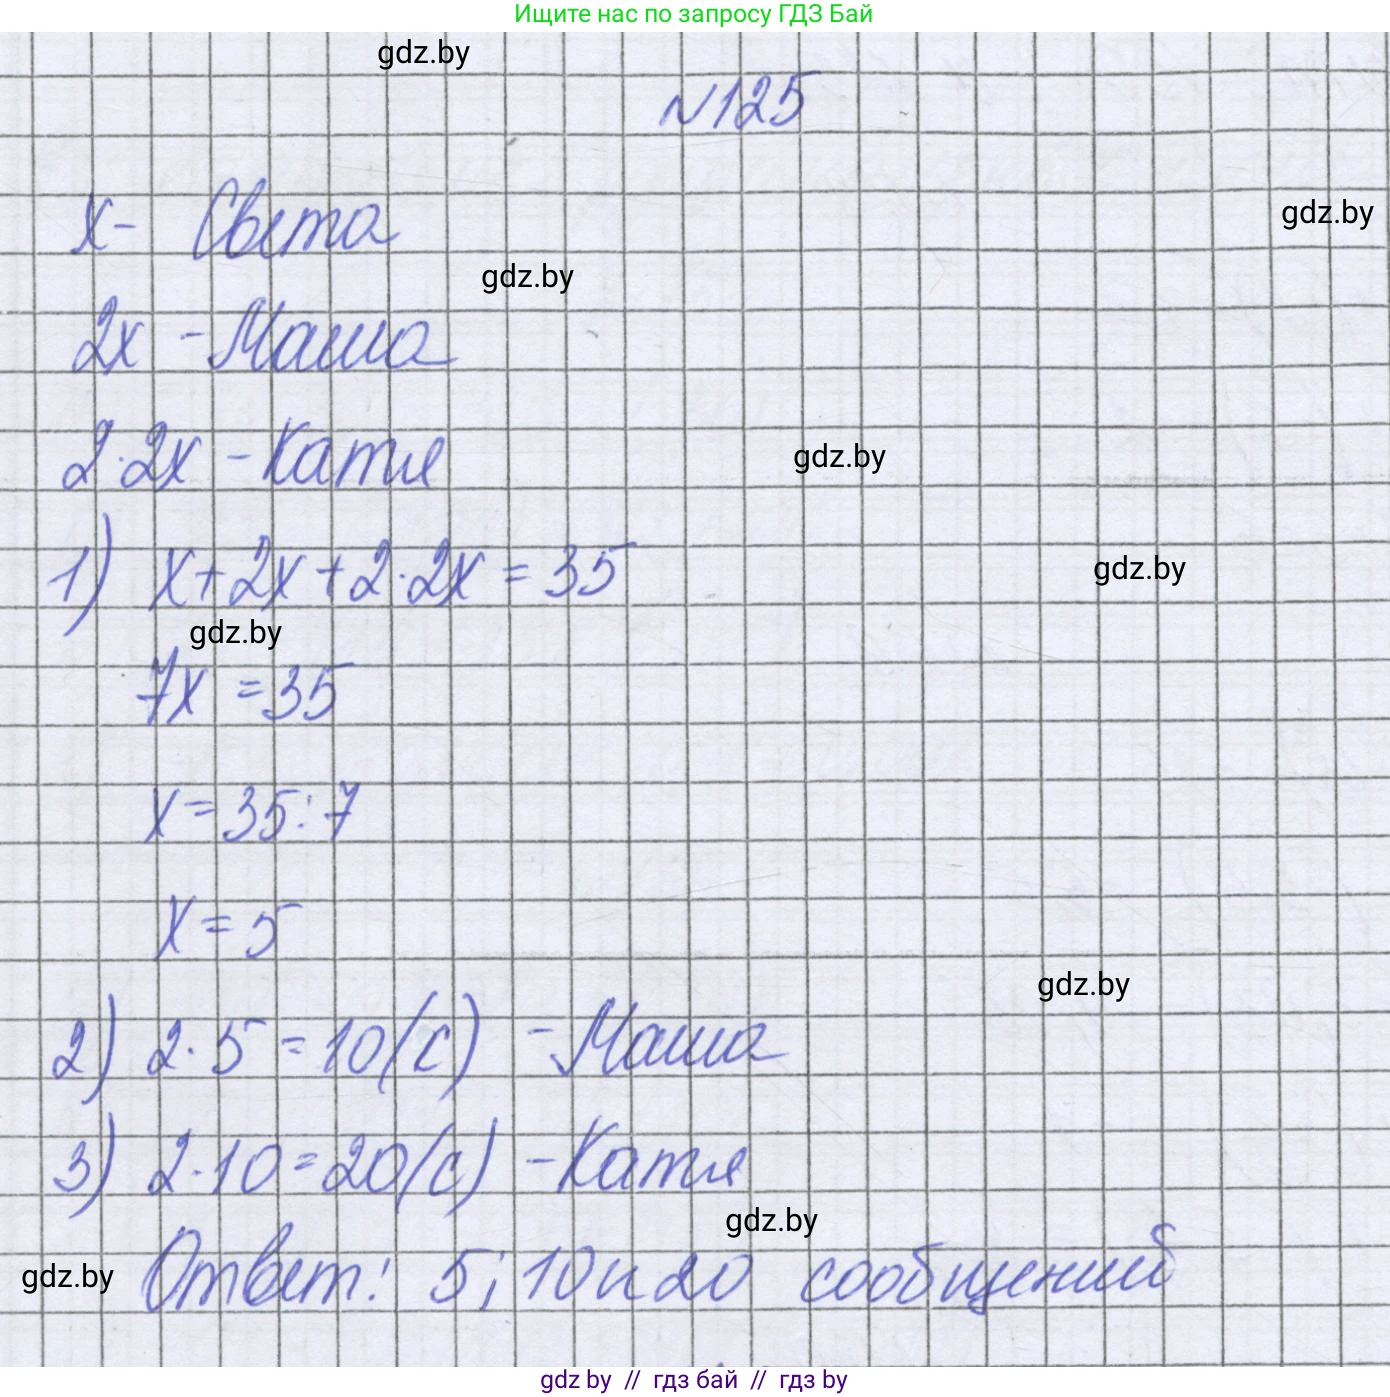 Ищите нас по запросу ГДЗ Бай
gdz.by
№125
х - Света
gdz.by
gdz.by
2х - Маша
2·2х - Катя
gdz.by
1) х+2х+2·2х = 35
gdz.by
gdz.by
7х = 35
х = 35:7
х = 5
gdz.by
2) 2·5 = 10(с) - Маша
3) 2·10 = 20(с) - Катя
gdz.by
gdz.by
Ответ: 5; 10 и 20 сообщений
gdz by // гдз бай // гдз by